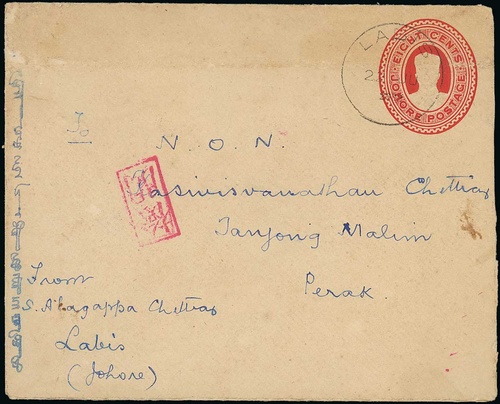 EIGHT CENTS
JOHORE POSTAGE
To
N. O. N.
Kasivisvanathan Chettiar
Tanjong Malim
Perak.
From
S. Alagappa Chettiar
Labis
(Johore)